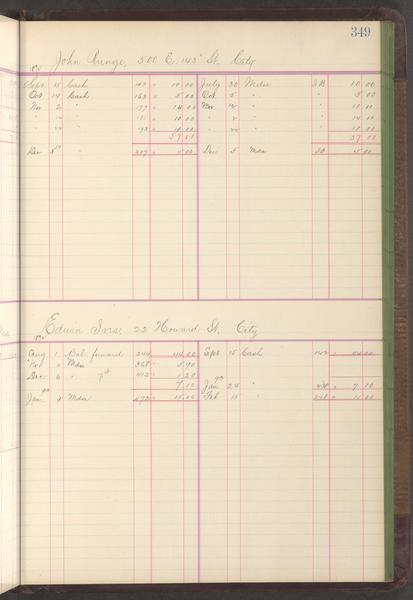 349
John Runge, 500 E. 143" St. City
Sept 15 Cash 10 00 July 30 Mdse 10 00
Oct 14 Cash 163 " 5 00 Oct 5 " " 5 00
Nov 2 " 177 " 14 00 Nov 12 " " 10 00
" 12 " 181 " 10 00 " 2 " " 14 00
" 24 " 193 " 18 00 " 24 " " 18 00
57 00 57 00
Dec 5 " 207 " 5 00 Dec 5 Mdse 5 00
Edwin 22 Howard St. City
Aug 1 Bal. forward 244 44 00 Sept 15 Cash 142 " 44 00
Nov " Mdse 368 " 5 90
Dec 6 " 412 " 1 20 90
7 10 Jan 24 " " 7 10
90
Jan 9 Mdse 473 " 15 00 Feb 15 " 248 "